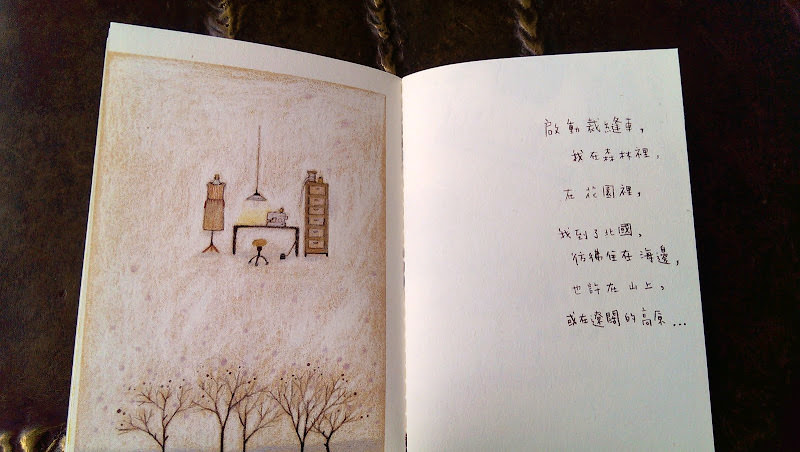 啟動裁縫車,
我在森林裡,
在花園裡,
我到了北國,
彷彿住在海邊,
也許在山上,
或在遼闊的高原...